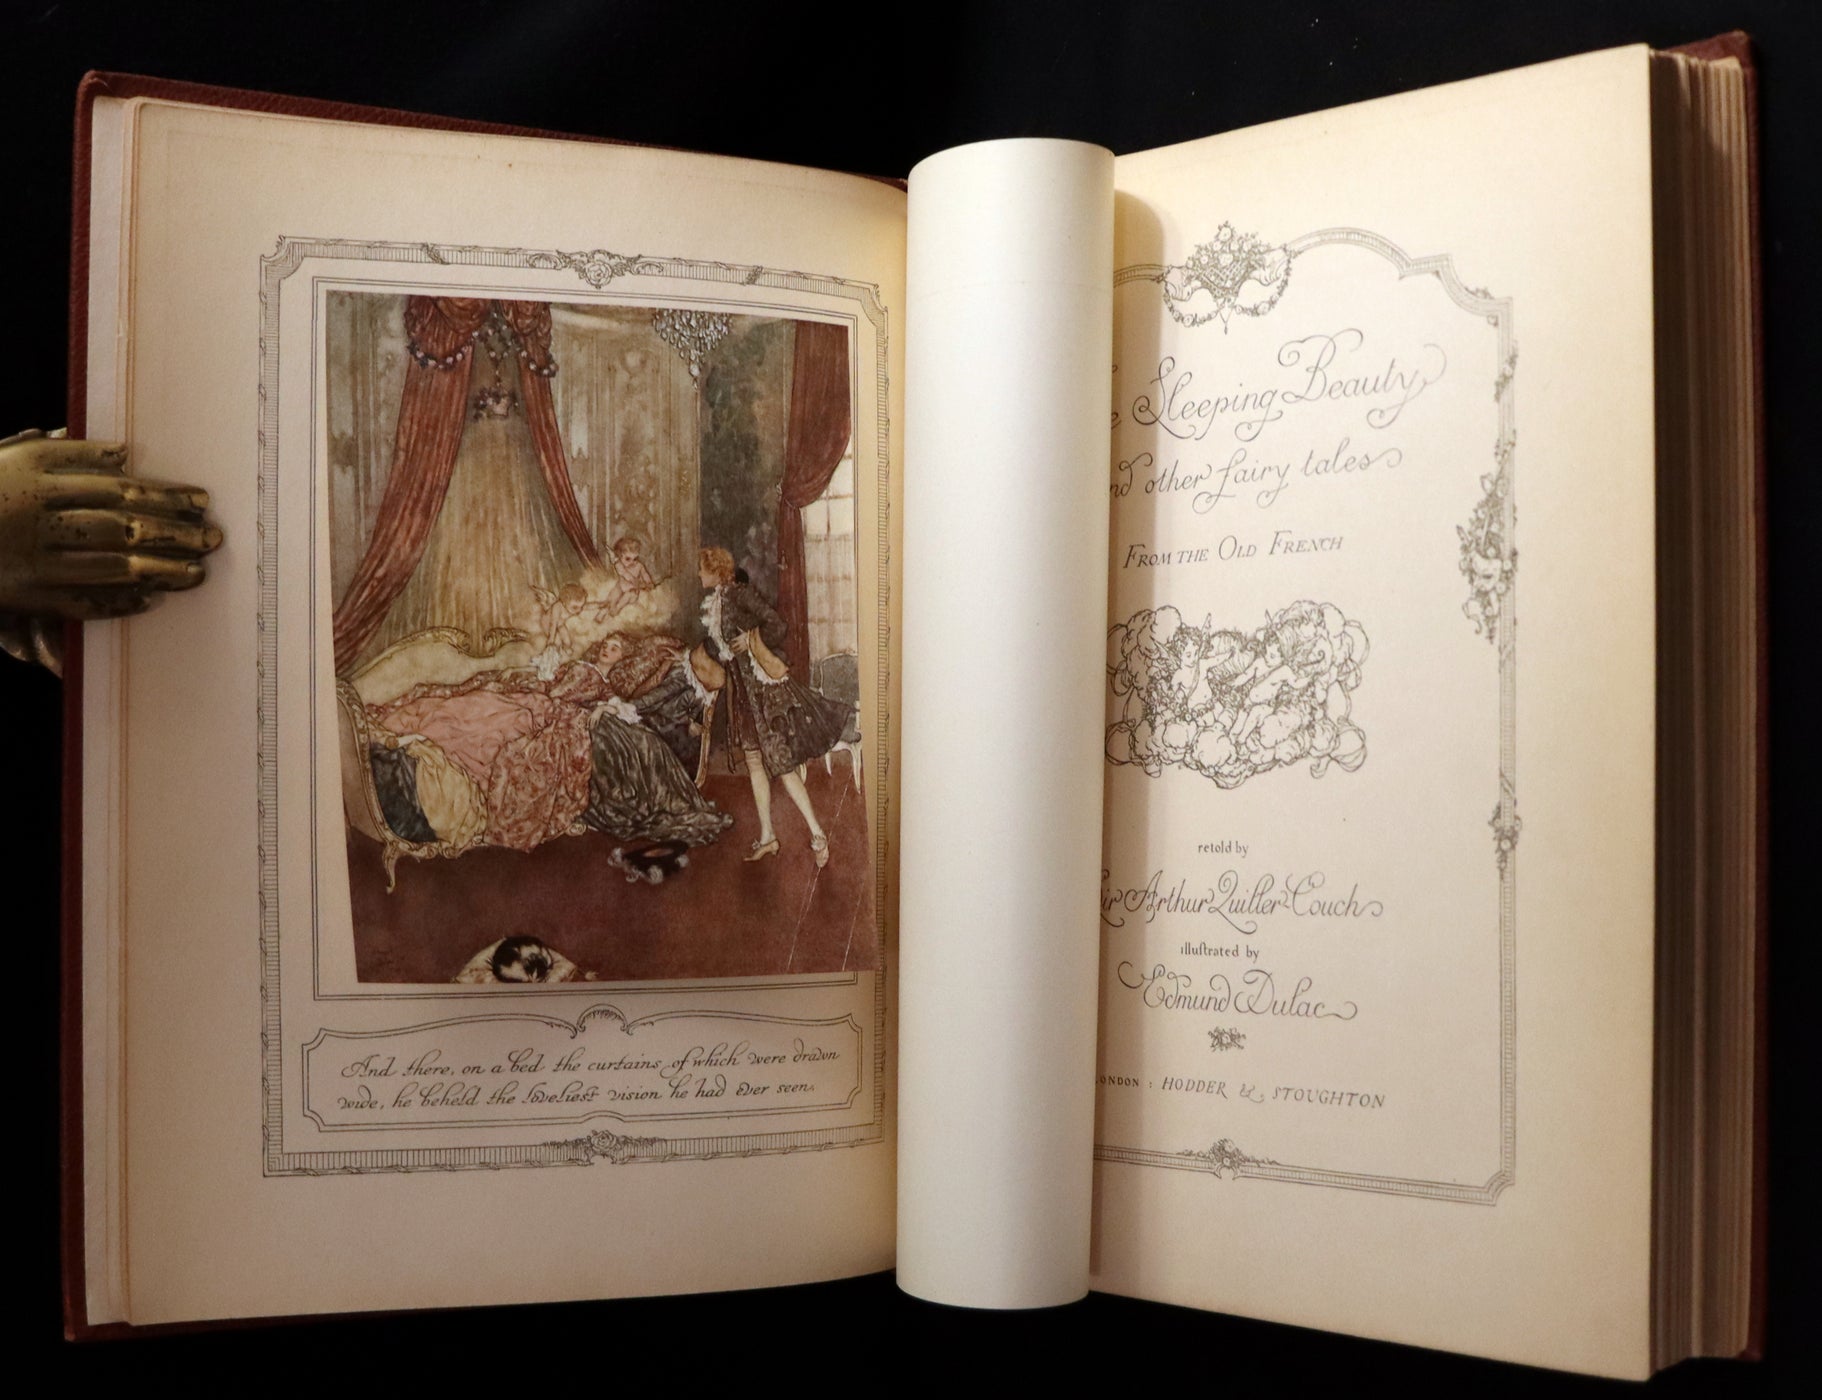 And there, on a bed the curtains of which were drawn
wide, he beheld the loveliest vision he had ever seen.
Sleeping Beauty
other fairy tales
FROM THE OLD FRENCH
retold by
Arthur Quiller-Couch
illustrated by
Edmund Dulac
HODDER & STOUGHTON